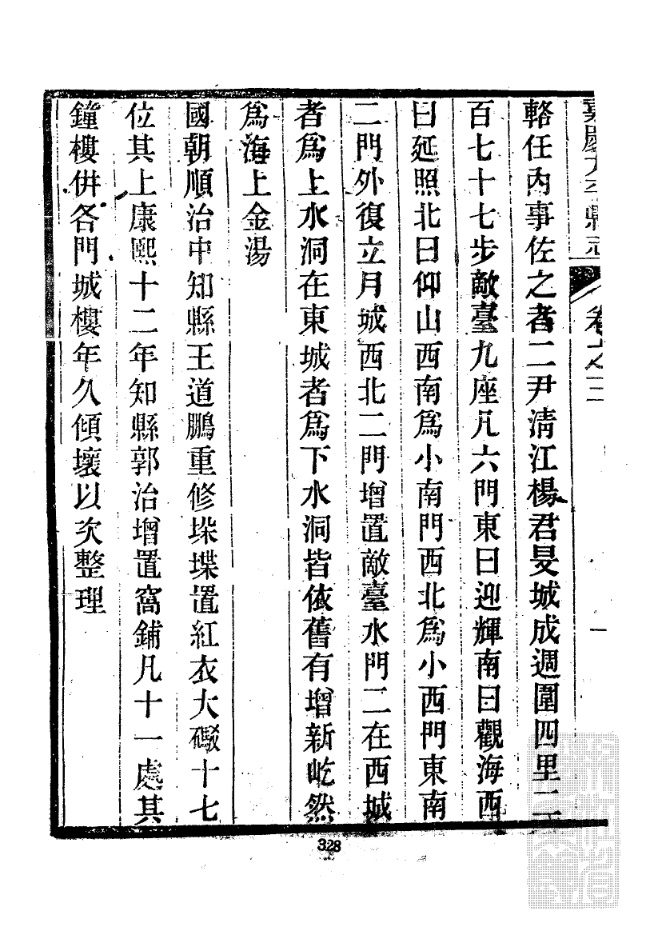 嘉慶太平縣志 卷之三 一
輅任內事佐之者二尹淸江楊君旻城成週圍四里二
百七十七步敵臺九座凡六門東曰迎輝南曰觀海西
曰延照北曰仰山西南爲小南門西北爲小西門東南
二門外復立月城西北二門增置敵臺水門二在西城
者爲上水洞在東城者爲下水洞皆依舊有增新屹然
爲海上金湯
國朝順治中知縣王道鵬重修垛堞置紅衣大礮十七
位其上康熙十二年知縣郭治增置窩鋪凡十一處其
鐘樓併各門城樓年久傾壞以次整理
328